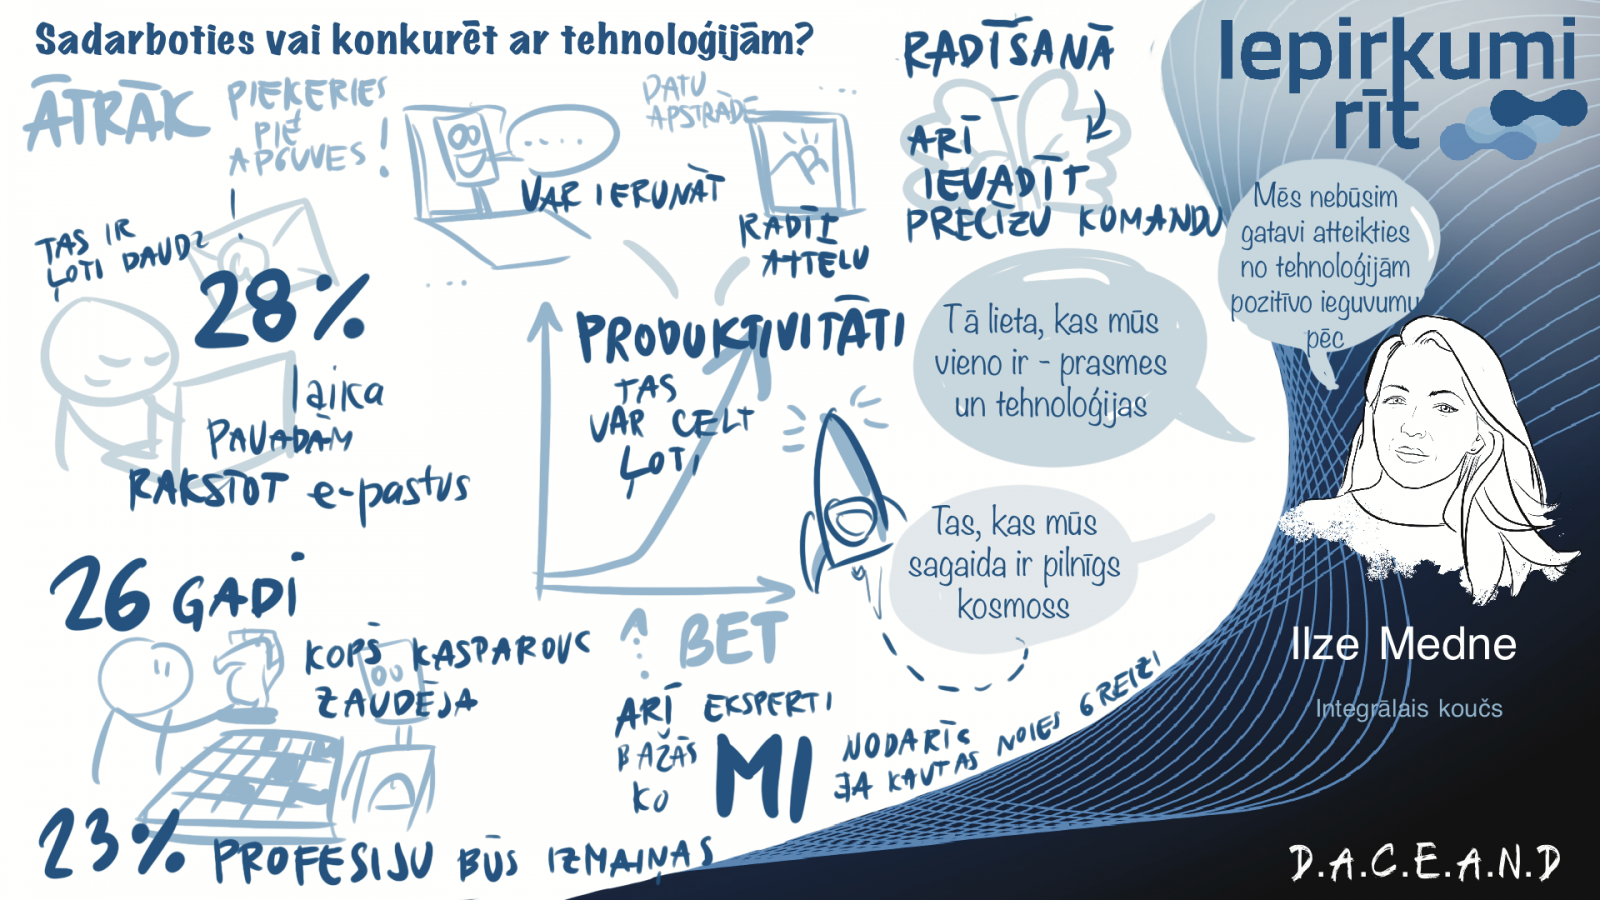 Sadarboties vai konkurēt ar tehnoloģijām?
ĀTRĀK
PIEĶERIES
PIE
APGUVES!
TAS IR
ĻOTI DAUDZ
28%
laika
PAVADAM
RAKSTOT e-pastus
VAR IERUNĀT
DATU
APSTRĀDE
RADĪT
ATTĒLU
RADĪŠANĀ
ARĪ
IEVADĪT
PRECĪZU KOMANDU
PRODUKTIVITĀTI
TAS
VAR CELT
ĻOTI
26 GADI
KOPŠ KASPAROVS
ZAUDĒJA
23% PROFESIJU BŪS IZMAIŅAS
BET
ARĪ EKSPERTI
BAŽĀS
KO
MI
NODARĪS
JA KAUT AS NOIES GREIZI
Tā lieta, kas mūs
vieno ir - prasmes
un tehnoloģijas
Tas, kas mūs
sagaida ir pilnīgs
kosmoss
Iepirkumi
rīt
Mēs nebūsim
gatavi atteikties
no tehnoloģijām
pozitīvo ieguvumu
pēc
Ilze Medne
Integrālais koučs
D.A.C.E.A.N.D